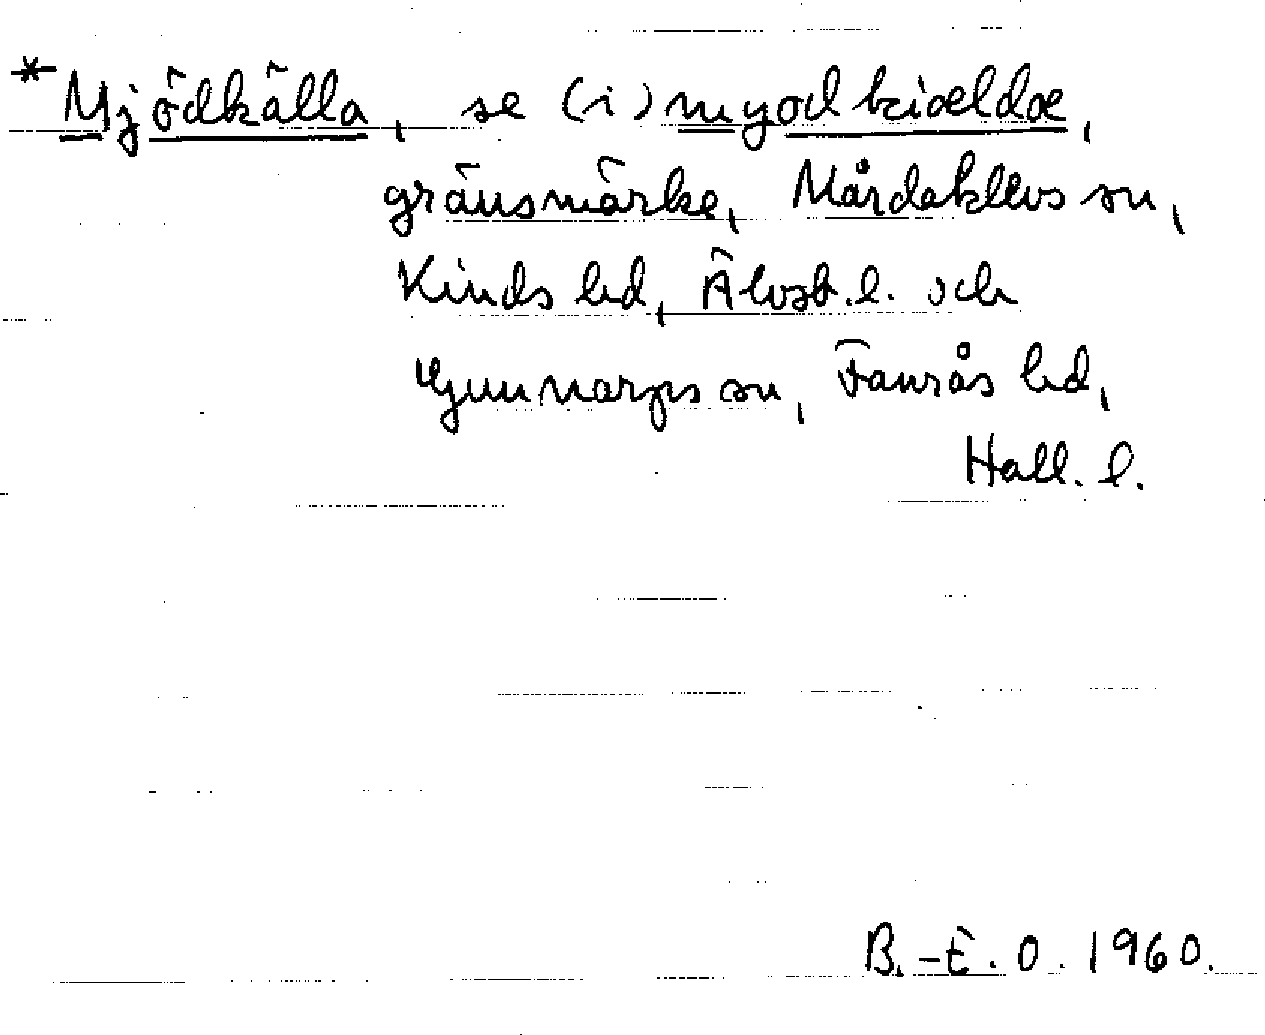 *Mjödkälla, se (i) myodkiældæ,
gränsmärke, Mårdaklevs sn,
Kinds hd, Älvsb.l. och
Gunnarps sn, Faurås hd,
Hall. l.
B.-E. O. 1960.